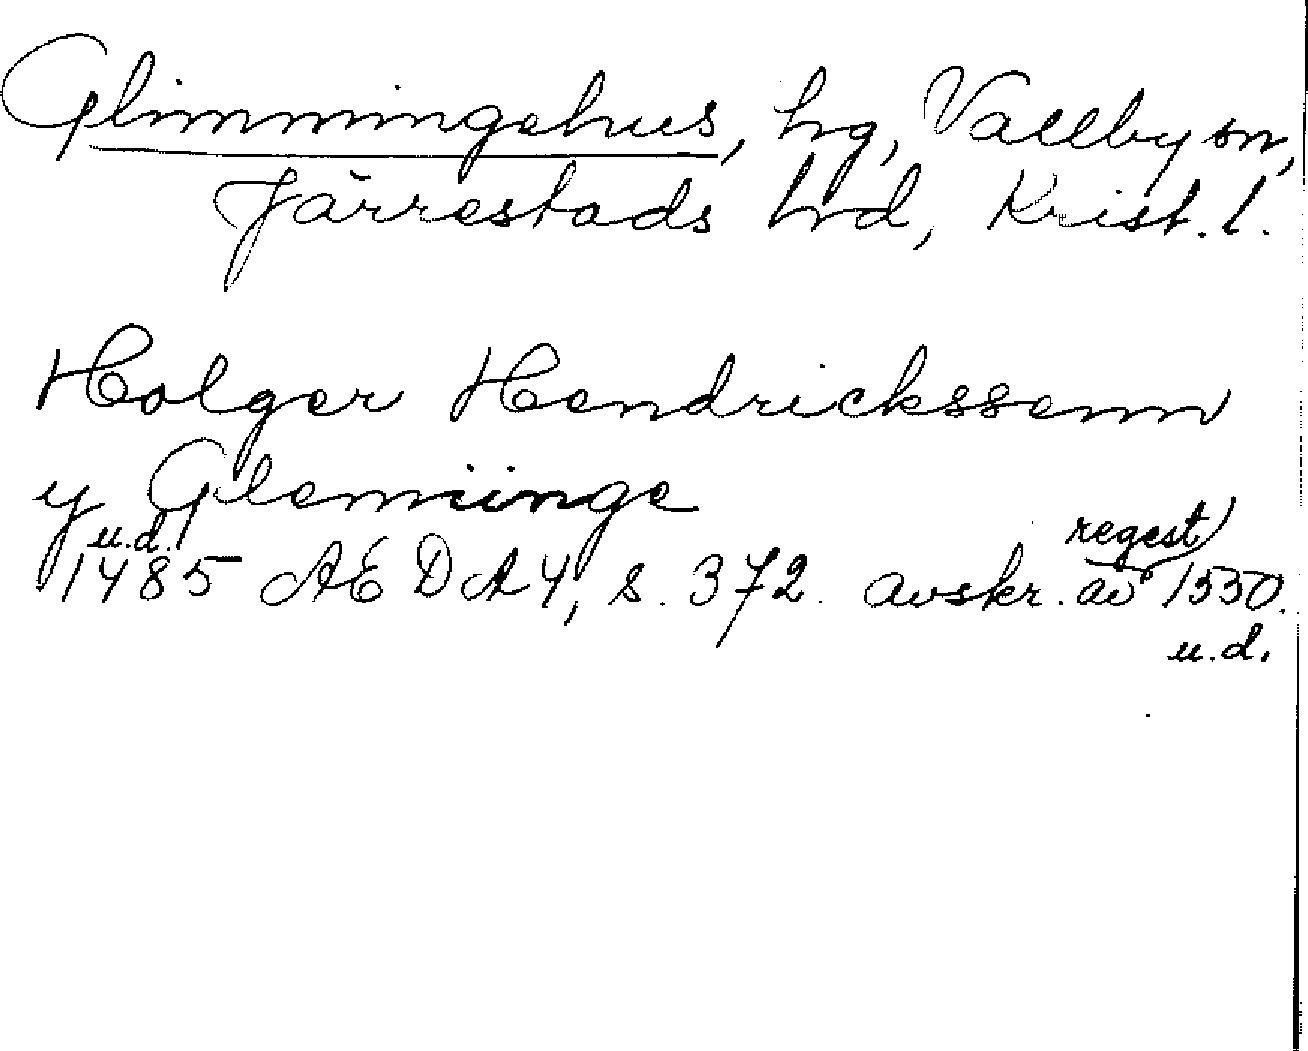 Glimmingehus, hg, Vallby sn,
Järrestads hrd, Krist. l.
Holger Hendrickssenn
y Glemiinge
u.d. regest
1485 AEDA 4, s. 372. avskr. av 1550.
u.d.